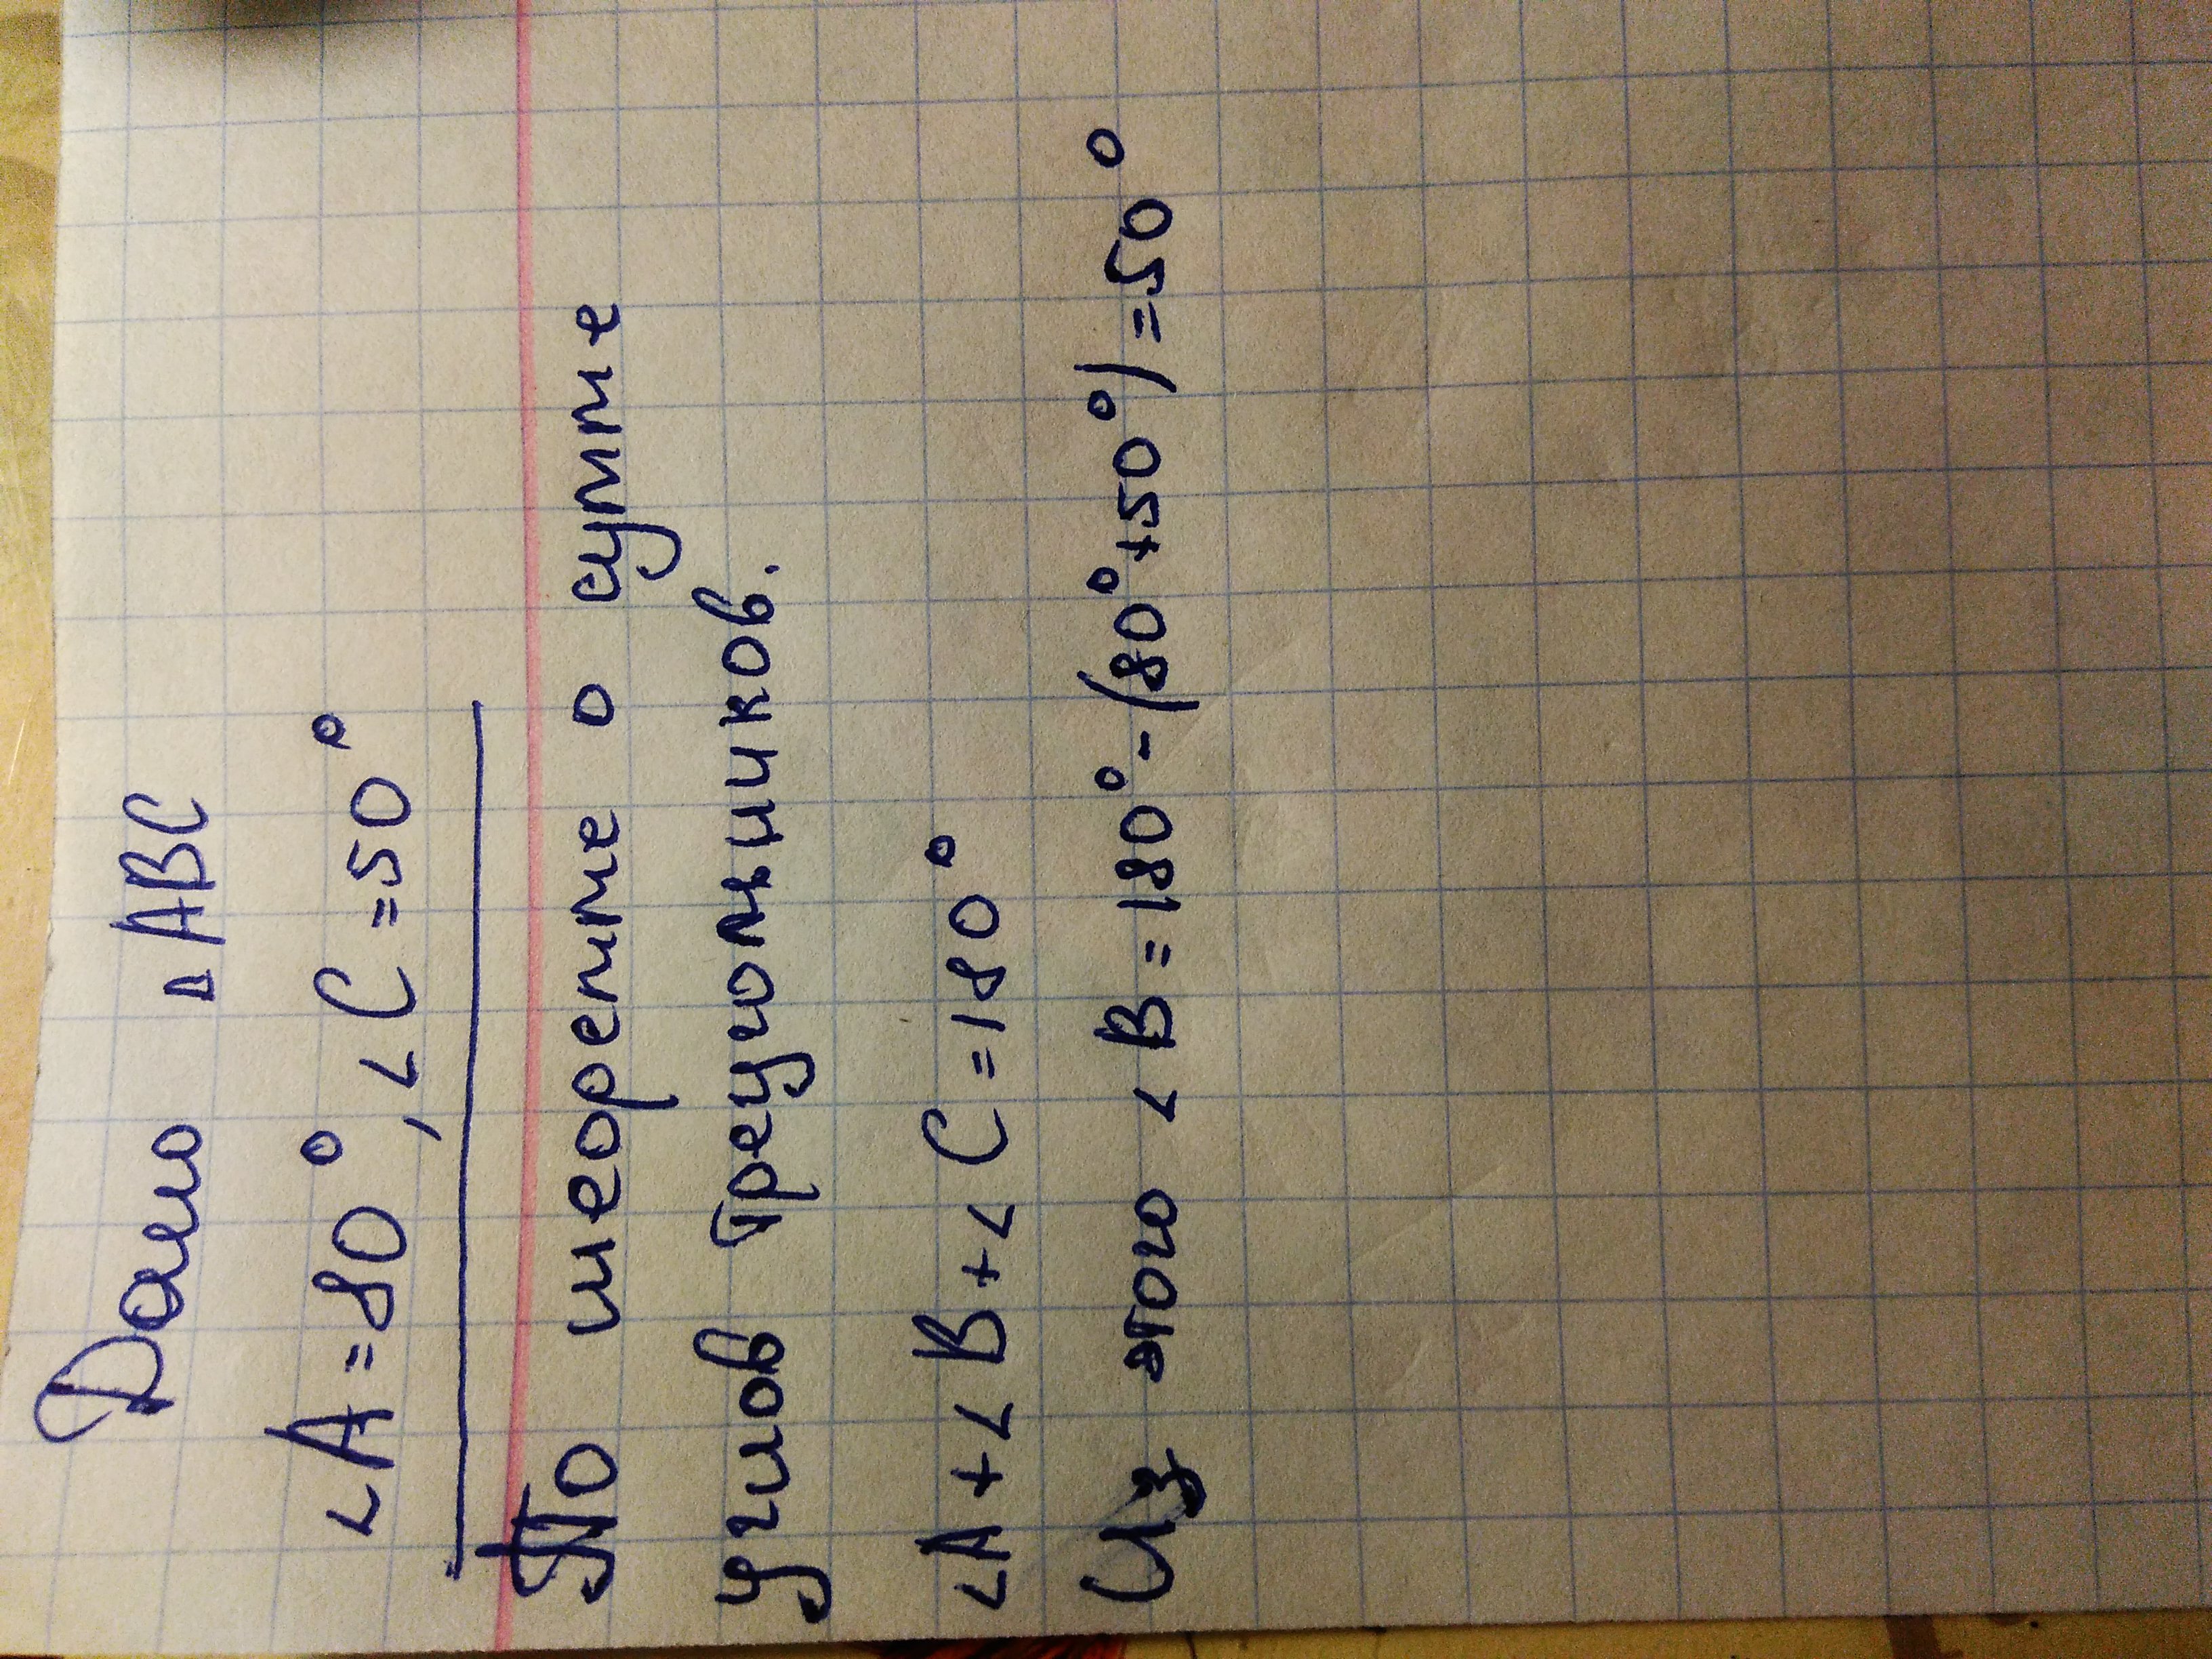 Дано ΔABC
<A=80°, <C=50°
По теореме о сумме
углов треугольников.
<A+<B+<C=180°
Из этого <B=180°-(80°+50°)=50°